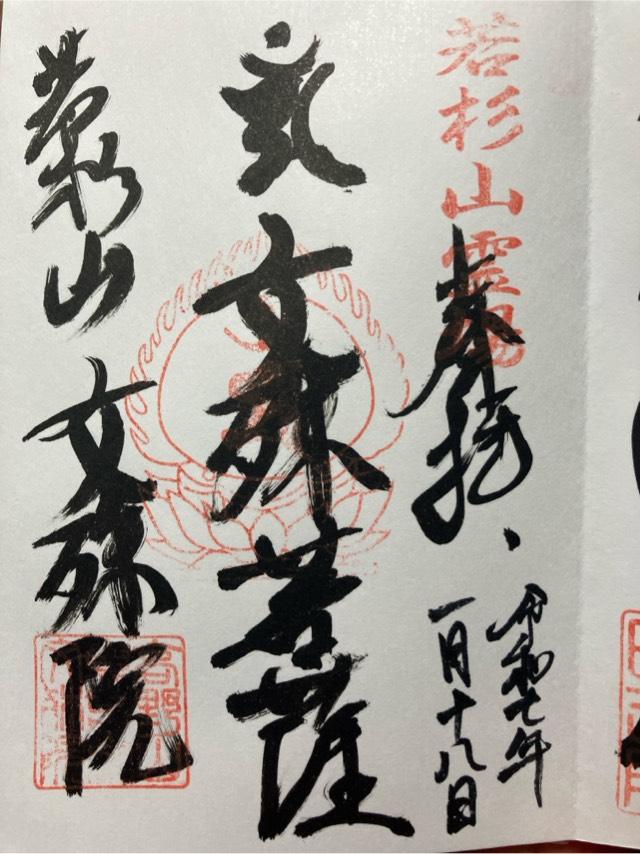 若杉山霊場
奉拝
令和七年
一月十八日
文殊菩薩
若杉山 文殊院
高野山